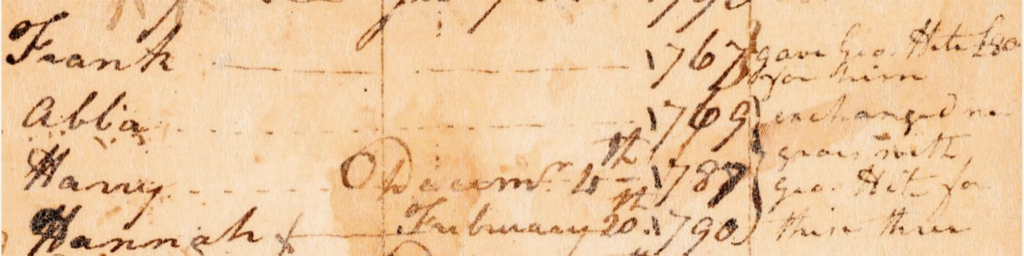 Frank 1767 gave Geo. Hite £80
for him
Abba 1769 exchanged ne-
groes with
Harry Decemr. 4th 1787 Geo. Hite for
Hannah Februuary 20th 1790 these three